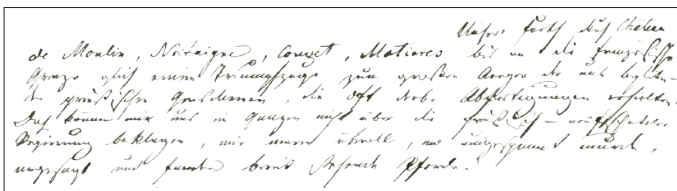 Unsere Fahrt durch Chateau
de Moulin, Noiraigue, Couvet, Motiers bis an die französische
Grenze glich einem Triumpfzuge zum großen Aerger der uns begleiten-
den preußischen Gensdarmen, die oft derbe Abfertigungen erhielten.
Doch können wir uns im Ganzen nicht über die preußisch-neufchateler
Regierung beklagen, wir waren überall, wo umgespannt wurde,
angesagt und fanden bereit stehende Pferde.